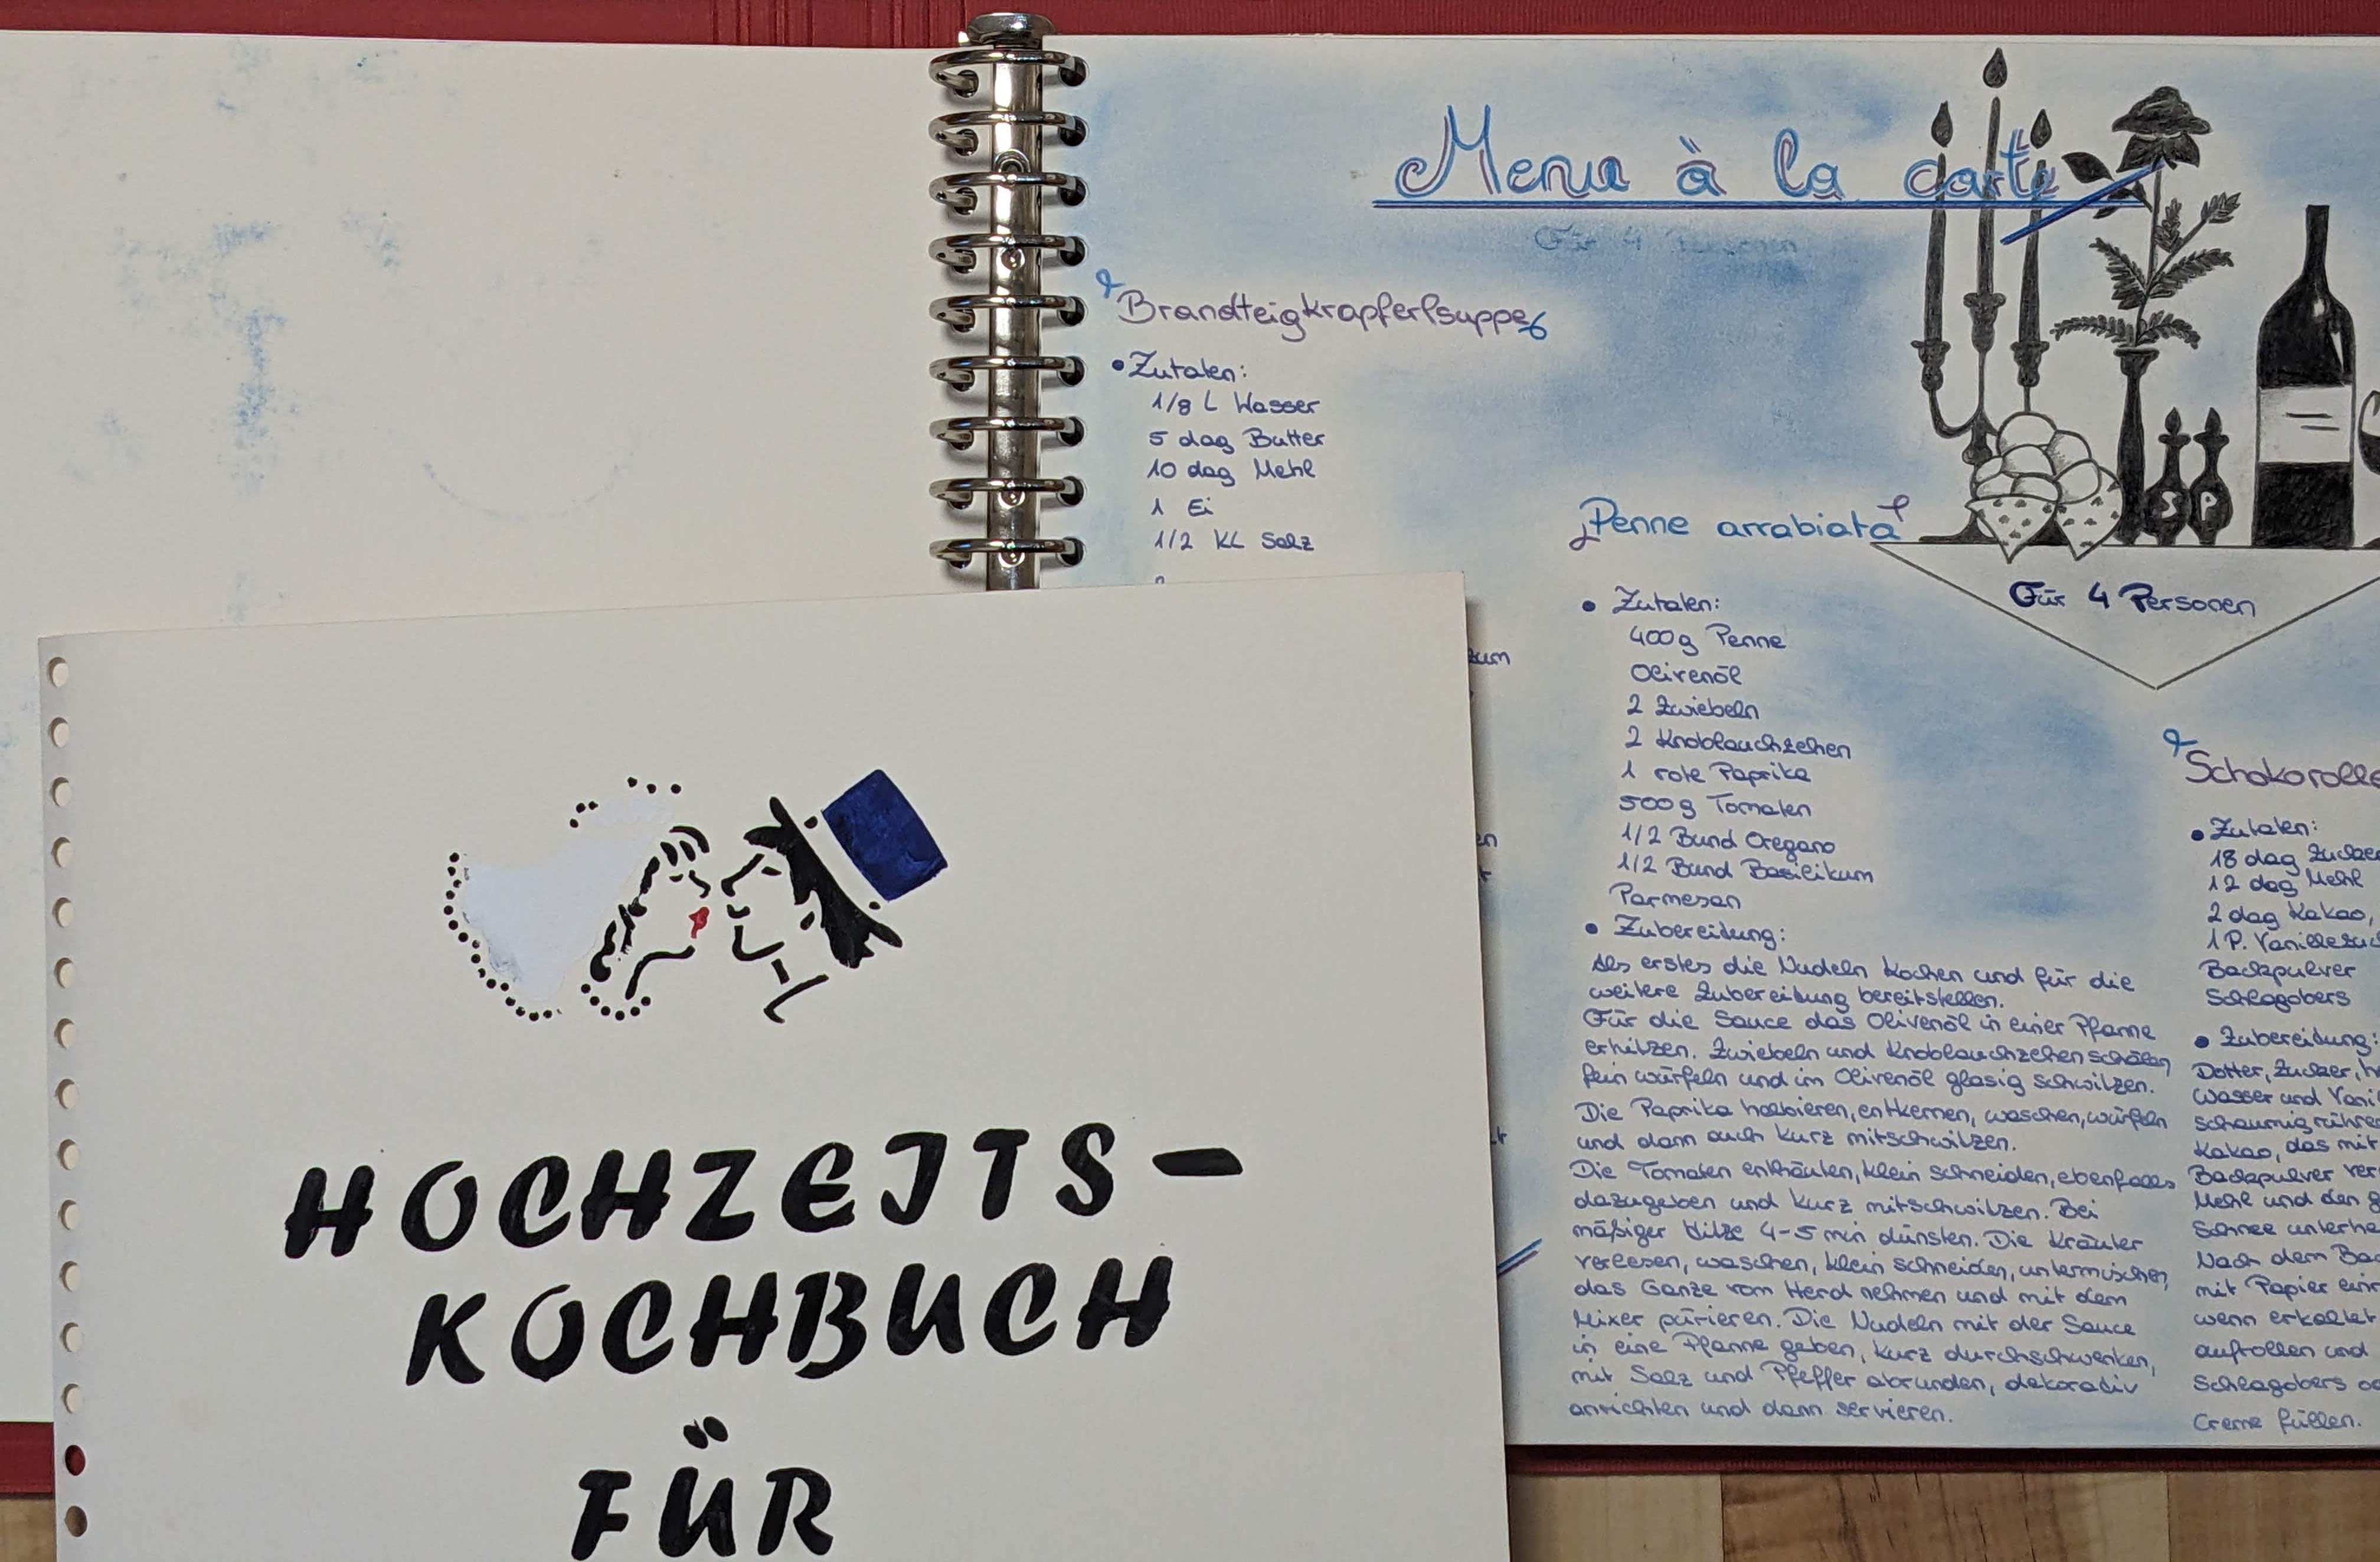 Menu à la carte
Für 4 Personen
Brandteigkrapferlsuppe
• Zutaten:
1/8 L Wasser
5 dag Butter
10 dag Mehl
1 Ei
1/2 KL Salz
zum
Penne arrabiata
• Zutaten:
400g Penne
Olivenöl
2 Zwiebeln
2 Knoblauchzehen
1 rote Paprika
500g Tomaten
1/2 Bund Oregano
1/2 Bund Basilikum
Parmesan
• Zubereitung:
Als erstes die Nudeln kochen und für die
weitere Zubereitung bereitstellen.
Für die Sauce das Olivenöl in einer Pfanne
erhitzen. Zwiebeln und Knoblauchzehen schälen,
fein würfeln und im Olivenöl glasig schwitzen.
Die Paprika halbieren, entkernen, waschen, würfeln
und dann auch kurz mitschwitzen.
Die Tomaten enthäuten, klein schneiden, ebenfalls
dazugeben und kurz mitschwitzen. Bei
mäßiger Hitze 4-5 min dünsten. Die Kräuter
verlesen, waschen, klein schneiden, untermischen,
das Ganze vom Herd nehmen und mit dem
Mixer pürieren. Die Nudeln mit der Sauce
in eine Pfanne geben, kurz durchschwenken,
mit Salz und Pfeffer abrunden, dekorativ
anrichten und dann servieren.
S P
Für 4 Personen
Schokorolle
• Zutaten:
18 dag Zucker
12 dag Mehl
2 dag Kakao,
1 P. Vanillezuc
Backpulver
Schlagobers
• Zubereitung:
Dotter, Zucker, h
Wasser und Vani
schaumig rühre
Kakao, das mit
Backpulver ver
Mehl und den g
Schnee unterhe
Nach dem Bac
mit Papier ein
wenn erkaltet
aufrollen und
Schlagobers od
Creme füllen.
HOCHZEITS-
KOCHBUCH
FÜR